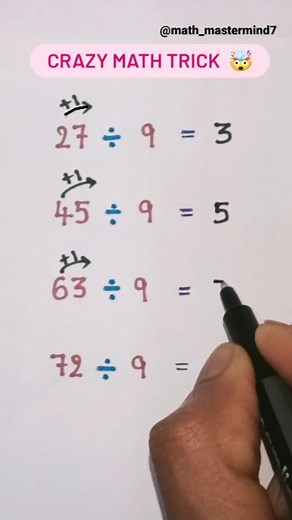 @math_mastermind7
CRAZY MATH TRICK 🤯
+1
27 ÷ 9 = 3
+1
45 ÷ 9 = 5
+1
63 ÷ 9 =
72 ÷ 9 =